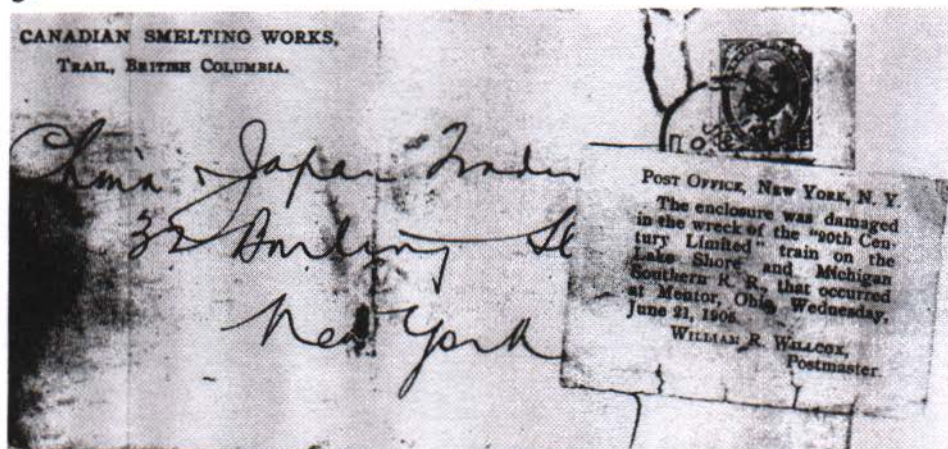 CANADIAN SMELTING WORKS,
TRAIL, BRITISH COLUMBIA.
China & Japan Tradin
32 Burling Sl
New York
POST OFFICE, NEW YORK, N. Y.
The enclosure was damaged
in the wreck of the "20th Cen-
tury Limited" train on the
Lake Shore and Michigan
Southern R. R., that occurred
at Mentor, Ohio, Wednesday,
June 21, 1905.
WILLIAM R. WILLCOX,
Postmaster.